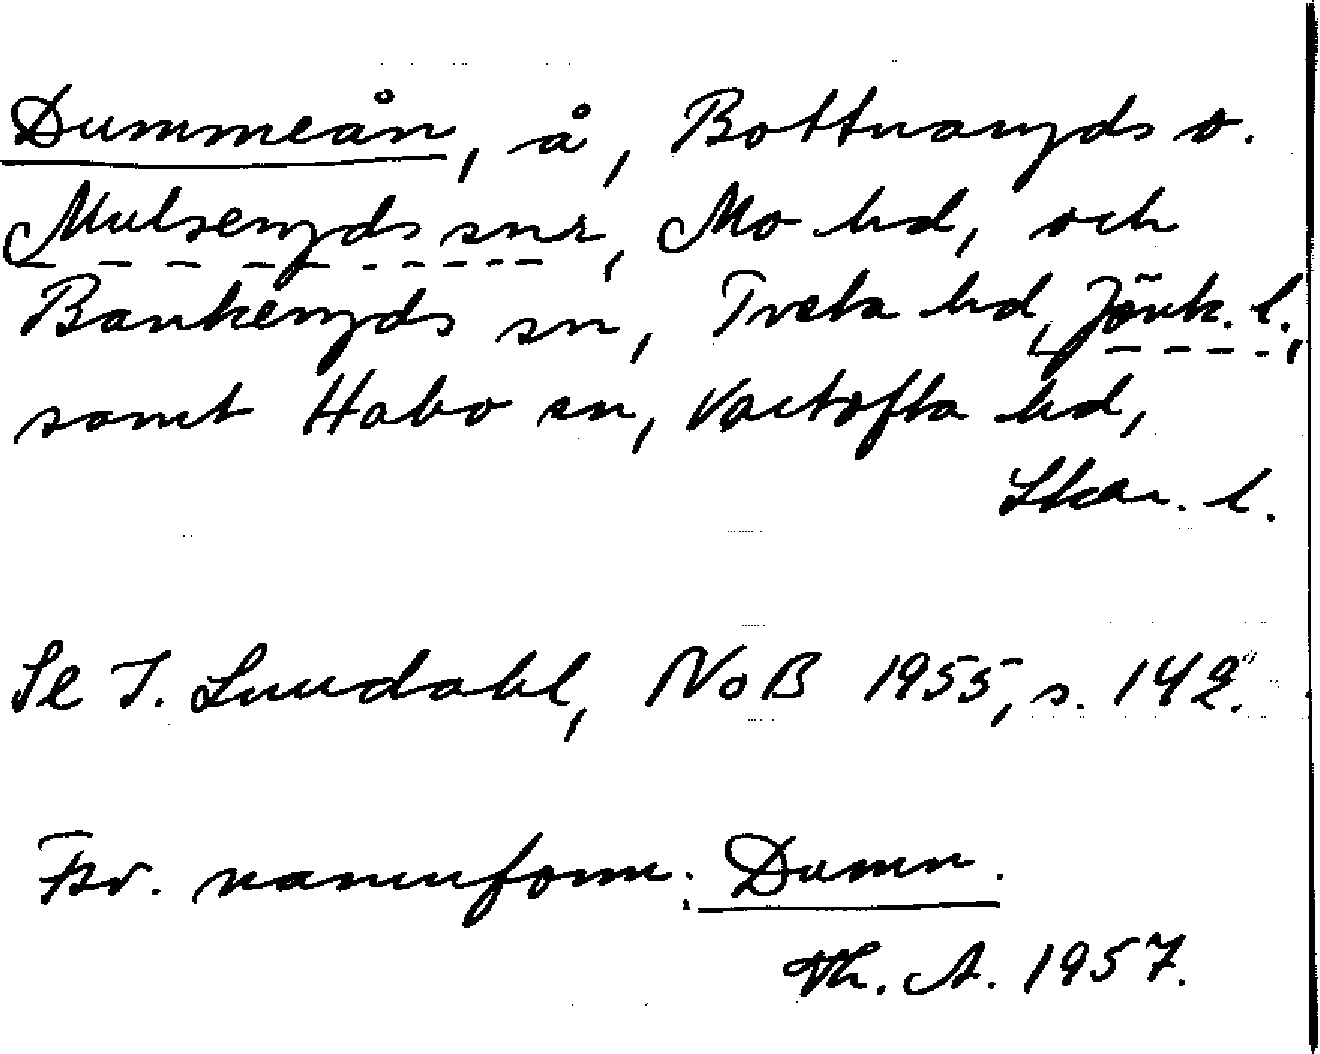 Dummeån, å, Bottnaryds o.
Mulseryds snr, Mo hd, och
Bankeryds sn, Tveta hd, Jönk. l.,
samt Habo sn, Vartofta hd,
Skar. l.
Se I. Lundahl, NoB 1955, s. 142.
Fsv. namnform: Dumn.
Th. A. 1957.